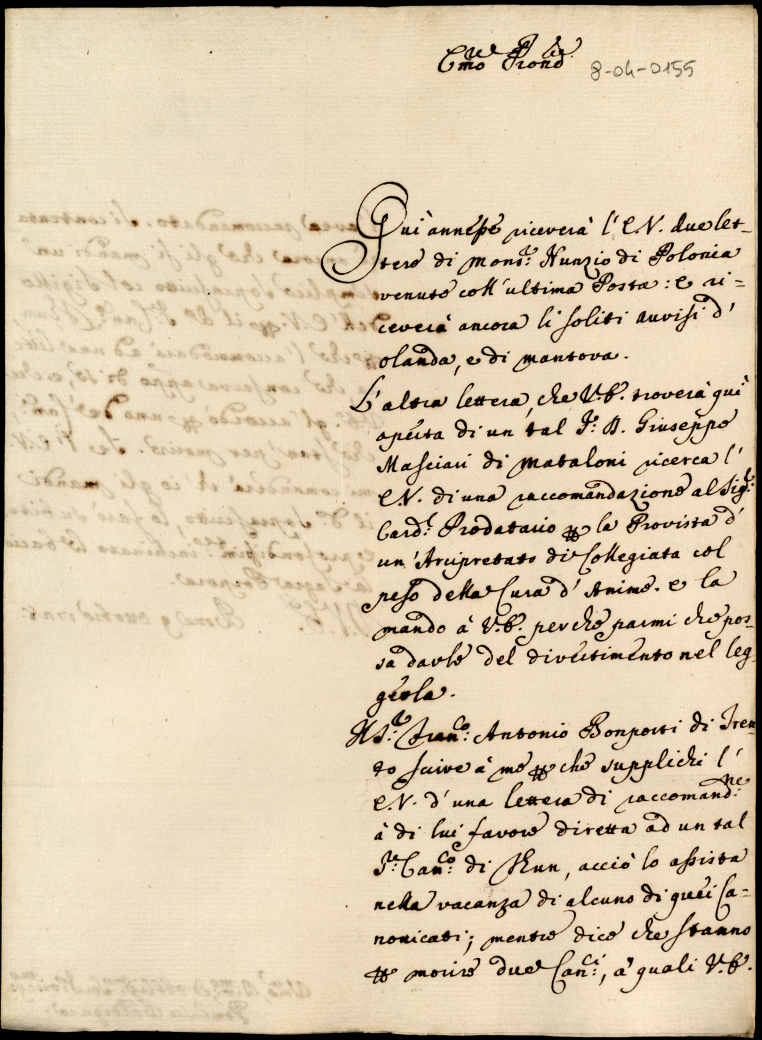 8-04-0155
Qui annesse riceverà l'E.V. due let-
tere di Mons.r Nunzio di Polonia
venute coll'ultima Posta: e ri-
ceverà ancora li soliti avvisi d'
olanda, e di mantova.
L'altra lettera, che V.E. troverà quì
aperta di un tal S.r D. Giuseppe
Masciari di Mataloni ricerca l'
E.V. di una raccomandazione al Sig.r
Card.l Prodatario per la Provista d'
un'Arcipretato di Collegiata col
peso della Cura d'Anime. e la
mando à V.E. perche parmi che pos-
sa darle del divertimento nel leg-
gerla.
Il S.r Fran.co Antonio Bonporti di Tren
to scrive à me per che supplichi l'
E.V. d'una lettera di raccomand.ne
à di lui favore diretta ad un tal
S.r Can.co di Khun, acciò lo assista
nella vacanza di alcuno di quei Ca-
nonicati; mentre dice che stanno
per morire due Can.ci, a' quali V.E.